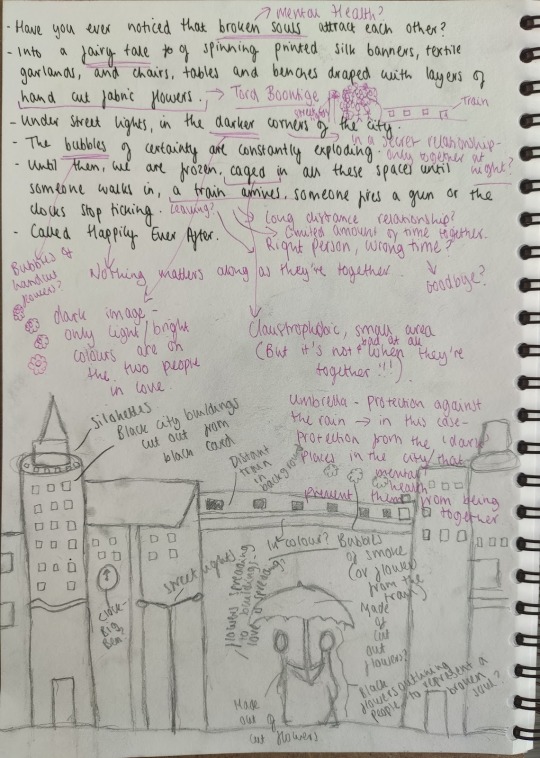 → Mental Health?
- Have you ever noticed that broken souls attract each other?
- Into a fairy tale of spinning printed silk banners, textile
garlands, and chairs, tables and benches draped with layers of
hand cut fabric flowers. → Tord Boontje
Train
- Under street lights, in the darker corners of the city.
In a secret relationship -
only together at
night?
- The bubbles of certainty are constantly exploding.
- Until then, we are frozen, caged in all these spaces until
someone walks in, a train arrives, someone fires a gun or the
clocks stop ticking.
Leaving?
→ Long distance relationship?
→ Limited amount of time together.
Right person, wrong time?
↓ Goodbye?
- Called Happily Ever After.
Bubbles of
handcut
flowers?
Nothing matters along as they're together.
dark image -
only light/bright
colours are on
the two people
in love.
Claustrophobic, small area
(But it's not bad at all when they're
together !!!)
Umbrella - protection against
the rain → in this case -
protection from the 'dark'
places in the city that
mental
health
prevent them from being
together
Silohettes
Black city buildings
cut out from
black card
Distant
train
in
background
In colour?
Bubbles
of smoke
(or flowers
from the
train)
Made
of
cut
out
flowers?
Street lights
Clock
Big
Ben
flowers spreading
to buildings:
love is spreading.
Black
flowers outlining
people to represent a
broken
soul?
Made
out of
cut flowers